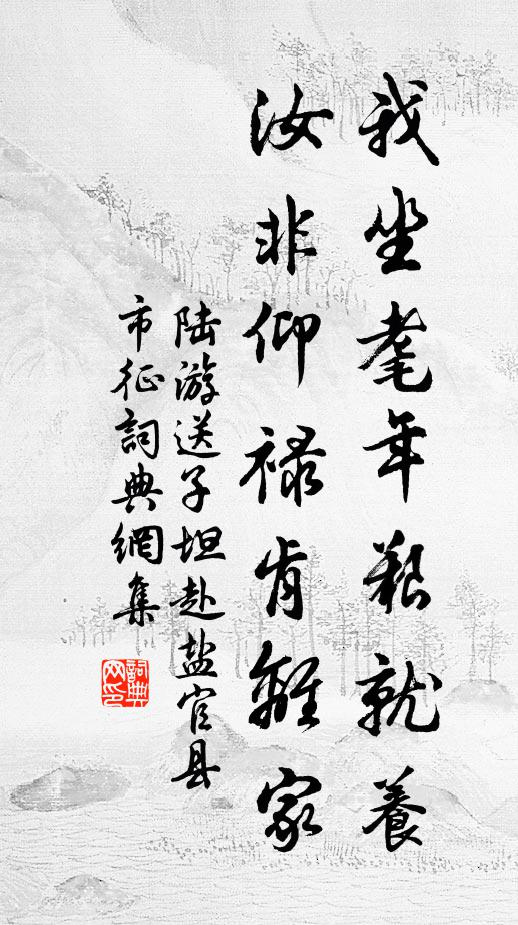 我坐耄年艰就養
汝非仰禄肯離家
陆游送子坦赴盐官县
市征詞典網集
詞典
网印